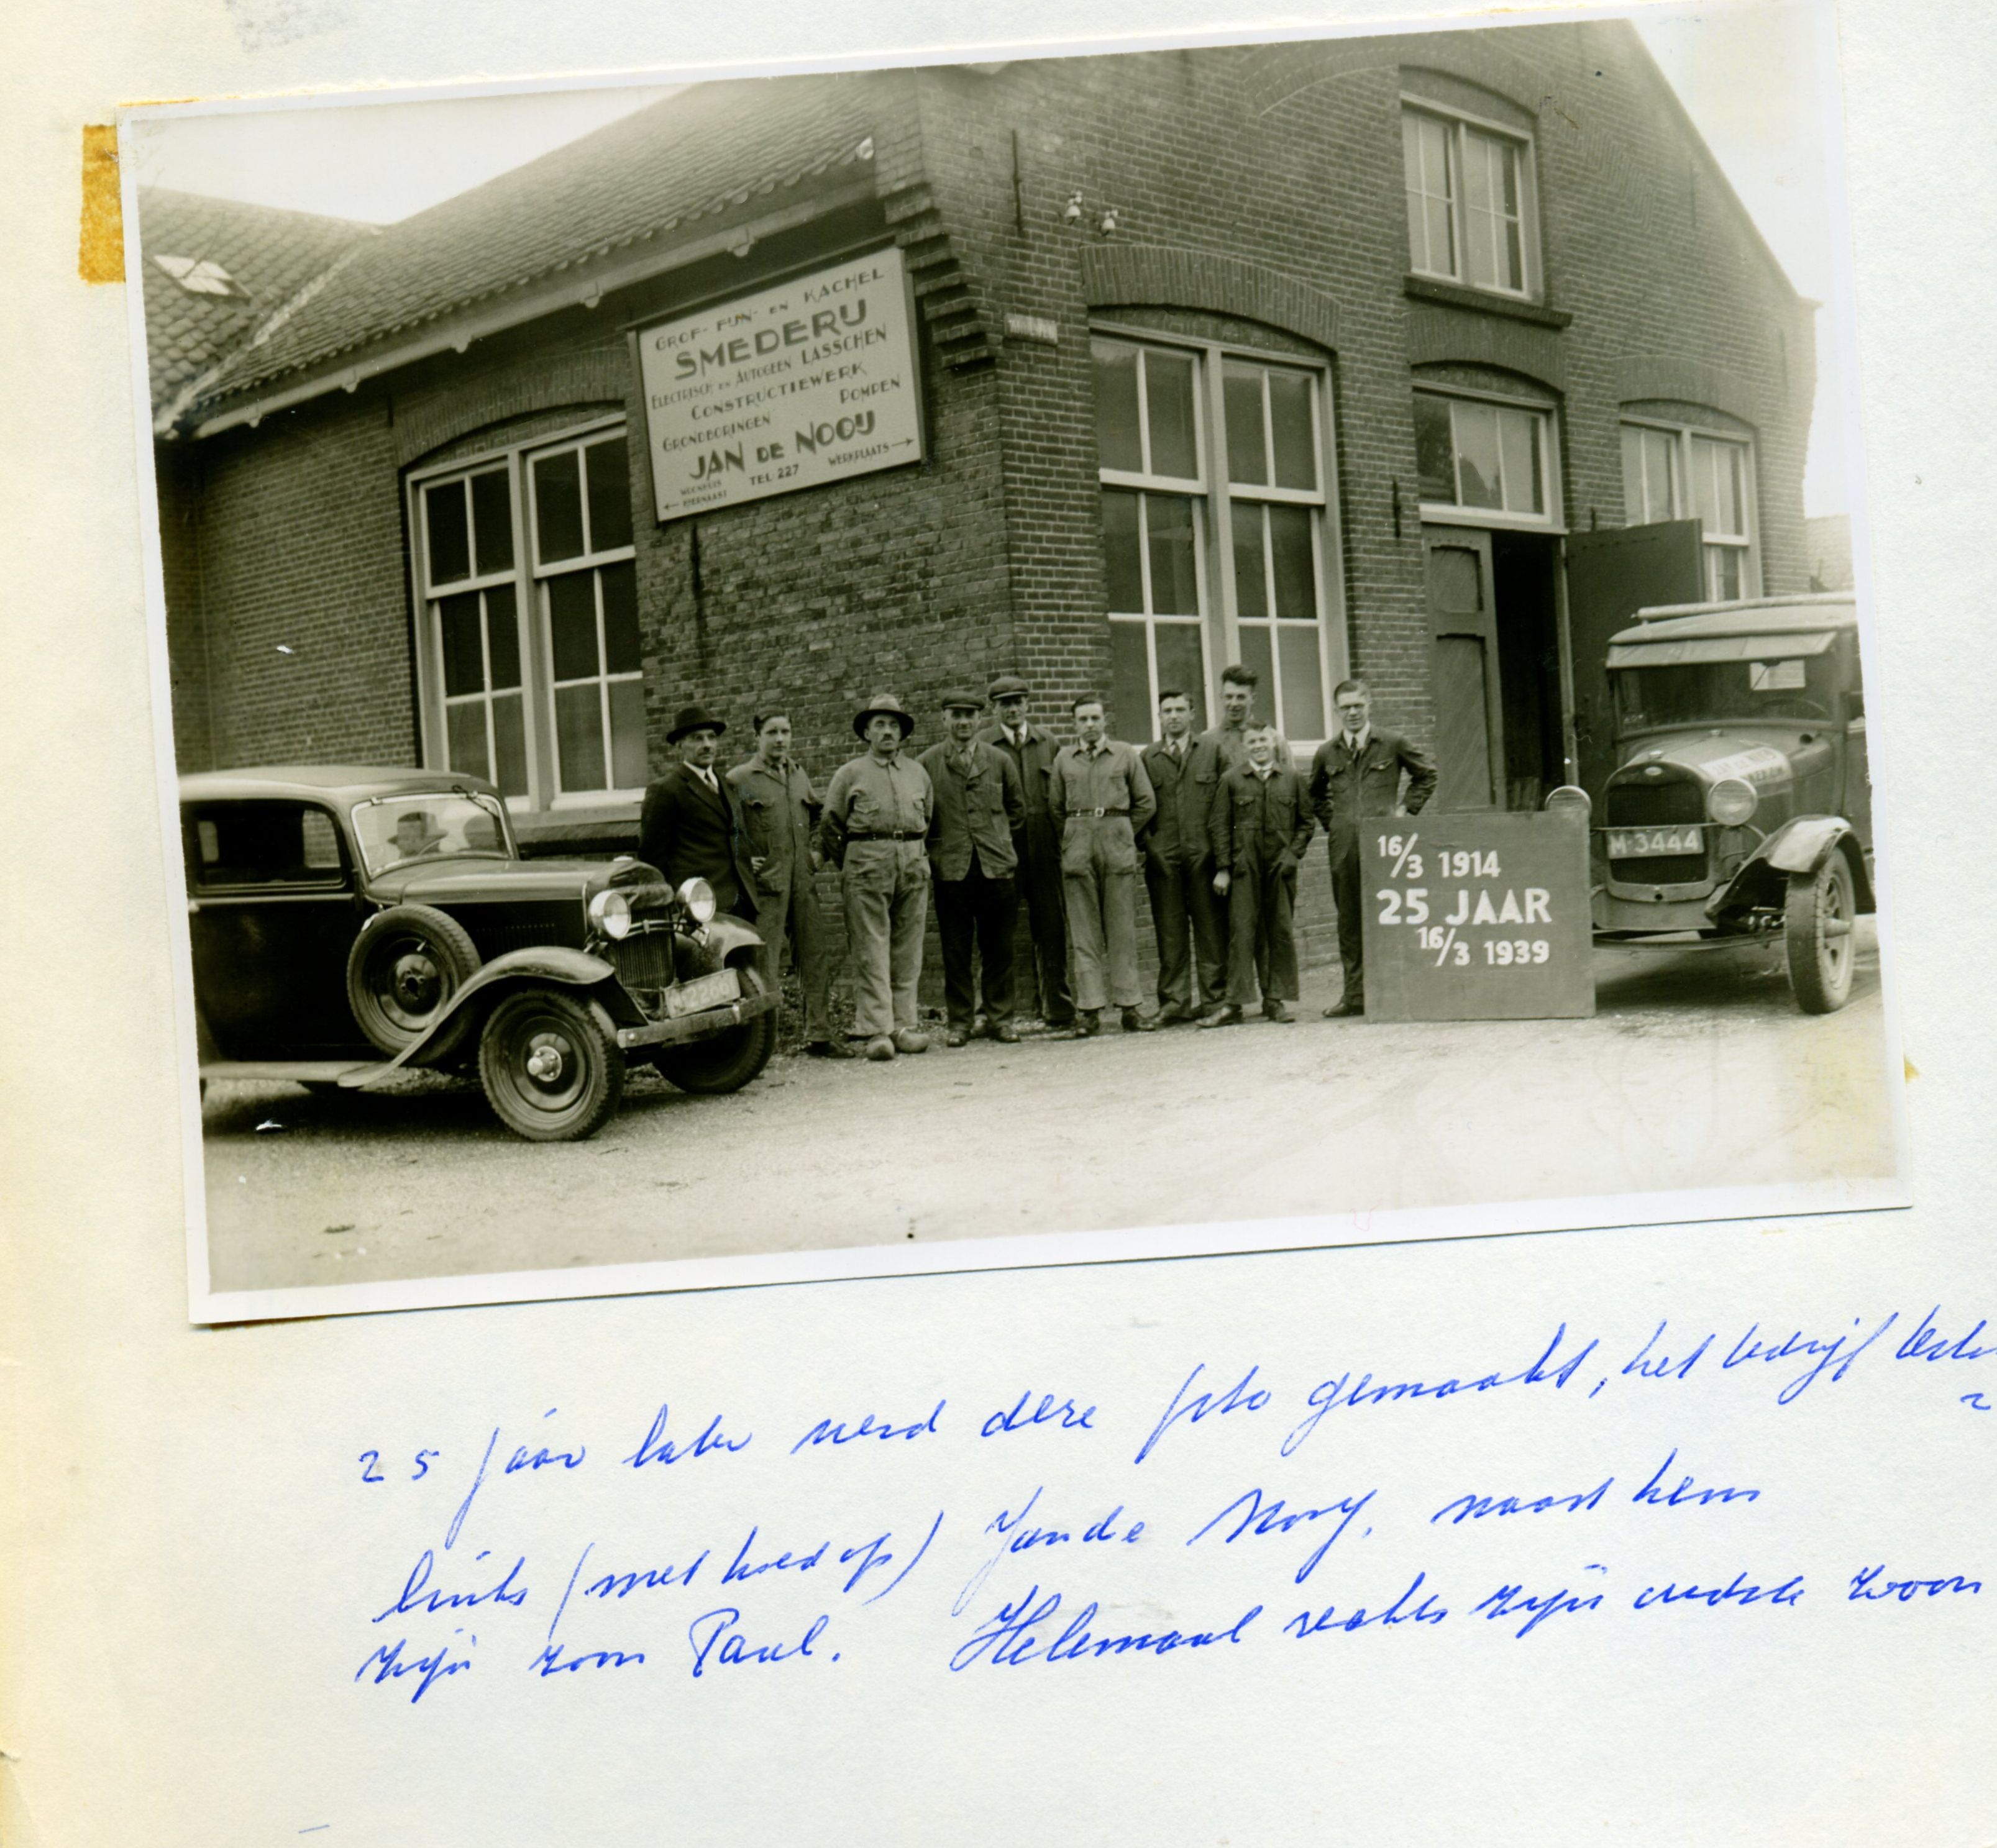 GROF- FIJN- EN KACHEL
SMEDERIJ
ELECTRISCH EN AUTOGEEN LASSCHEN
CONSTRUCTIEWERK
GRONDBORINGEN POMPEN
JAN DE NOOIJ
WOONHUIS HIERNAAST TEL 227 WERKPLAATS
M-2266
M-3444
16/3 1914
25 JAAR
16/3 1939
25 jaar later werd deze foto gemaakt, het bedrijf
links (met hoed op) Jan de Nooy. naast hem
zijn zoon Paul. Helemaal rechts zijn oudste zoon